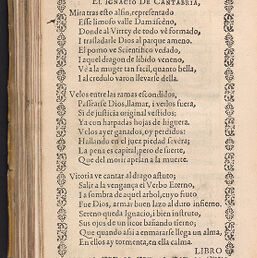 EL IGNACIO DE CANTABRIA,
Mira tras esto alsin, representado
Esse limoso valle Damasceno,
Donde al Virrey de todo vè formado,
I trasladarle Dios al parque ameno.
El pomo ve Scientifico vedado,
I aquel dragon de libido veneno,
Vè a la muger tan facil, quanto bella,
I al credulo varon llevarse della.
Velos entre las ramas escondidos,
Passearse Dios, llamar, i verlos fuera,
Si de justicia original vestidos;
Ya con harpadas hojas de higuera.
Velos ayer ganados, oy perdidos:
Hallando en el juez piedad severa;
La pena es capital, pero de suerte,
Que del morir apelan a la muerte.
Vitoria ve cantar al drago astuto;
Salir a la vengança el Verbo Eterno,
I a sombra de aquel arbol, cuyo fruto
Fue Dios, armar buen lazo al duro infierno.
Sereno queda Ignacio, i bien instruto,
Sus ojos de un licor bañando tierno;
Que quando assi a enmararse llega un alma,
En ellos ay tormenta, en ella calma.
LIBRO